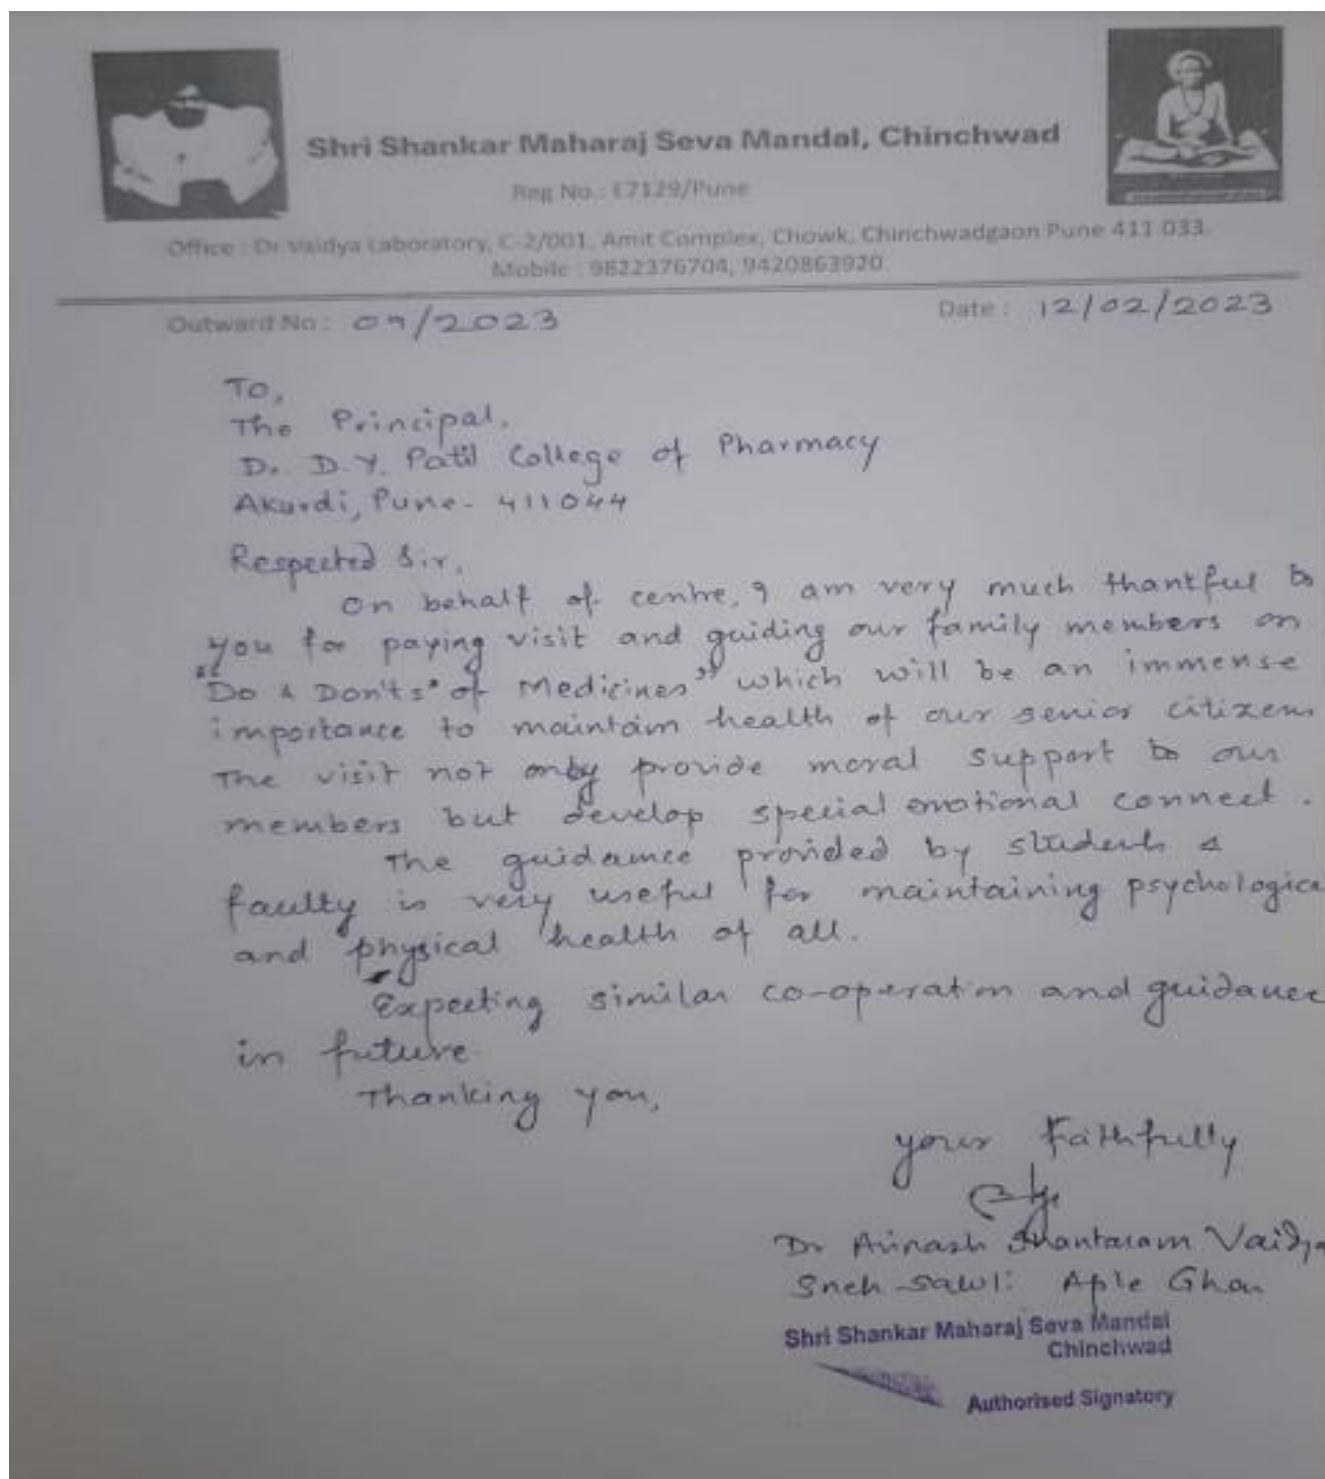 Shri Shankar Maharaj Seva Mandal, Chinchwad
Reg No.: E7129/Pune
Office : Dr Vaidya Laboratory, C-2/001, Amit Complex, Chowk, Chinchwadgaon Pune 411 033.
Mobile : 9822376704, 9420863920
Outward No : 09/2023
Date : 12/02/2023
To,
The Principal,
Dr. D.Y. Patil College of Pharmacy
Akurdi, Pune - 411044
Respected Sir,
On behalf of centre, I am very much thankful to
you for paying visit and guiding our family members on
"Do & Don'ts" of Medicines" which will be an immense
importance to maintain health of our senior citizens
The visit not only provide moral support to our
members but develop special emotional connect.
The guidance provided by students &
faulty is very useful for maintaining psychologica
and physical health of all.
Expecting similar co-operation and guidance
in future.
Thanking you,
your Faithfully
Dr Avinash Shantaram Vaidya
Sneh Sawli Aple Ghar
Shri Shankar Maharaj Seva Mandal
Chinchwad
Authorised Signatory